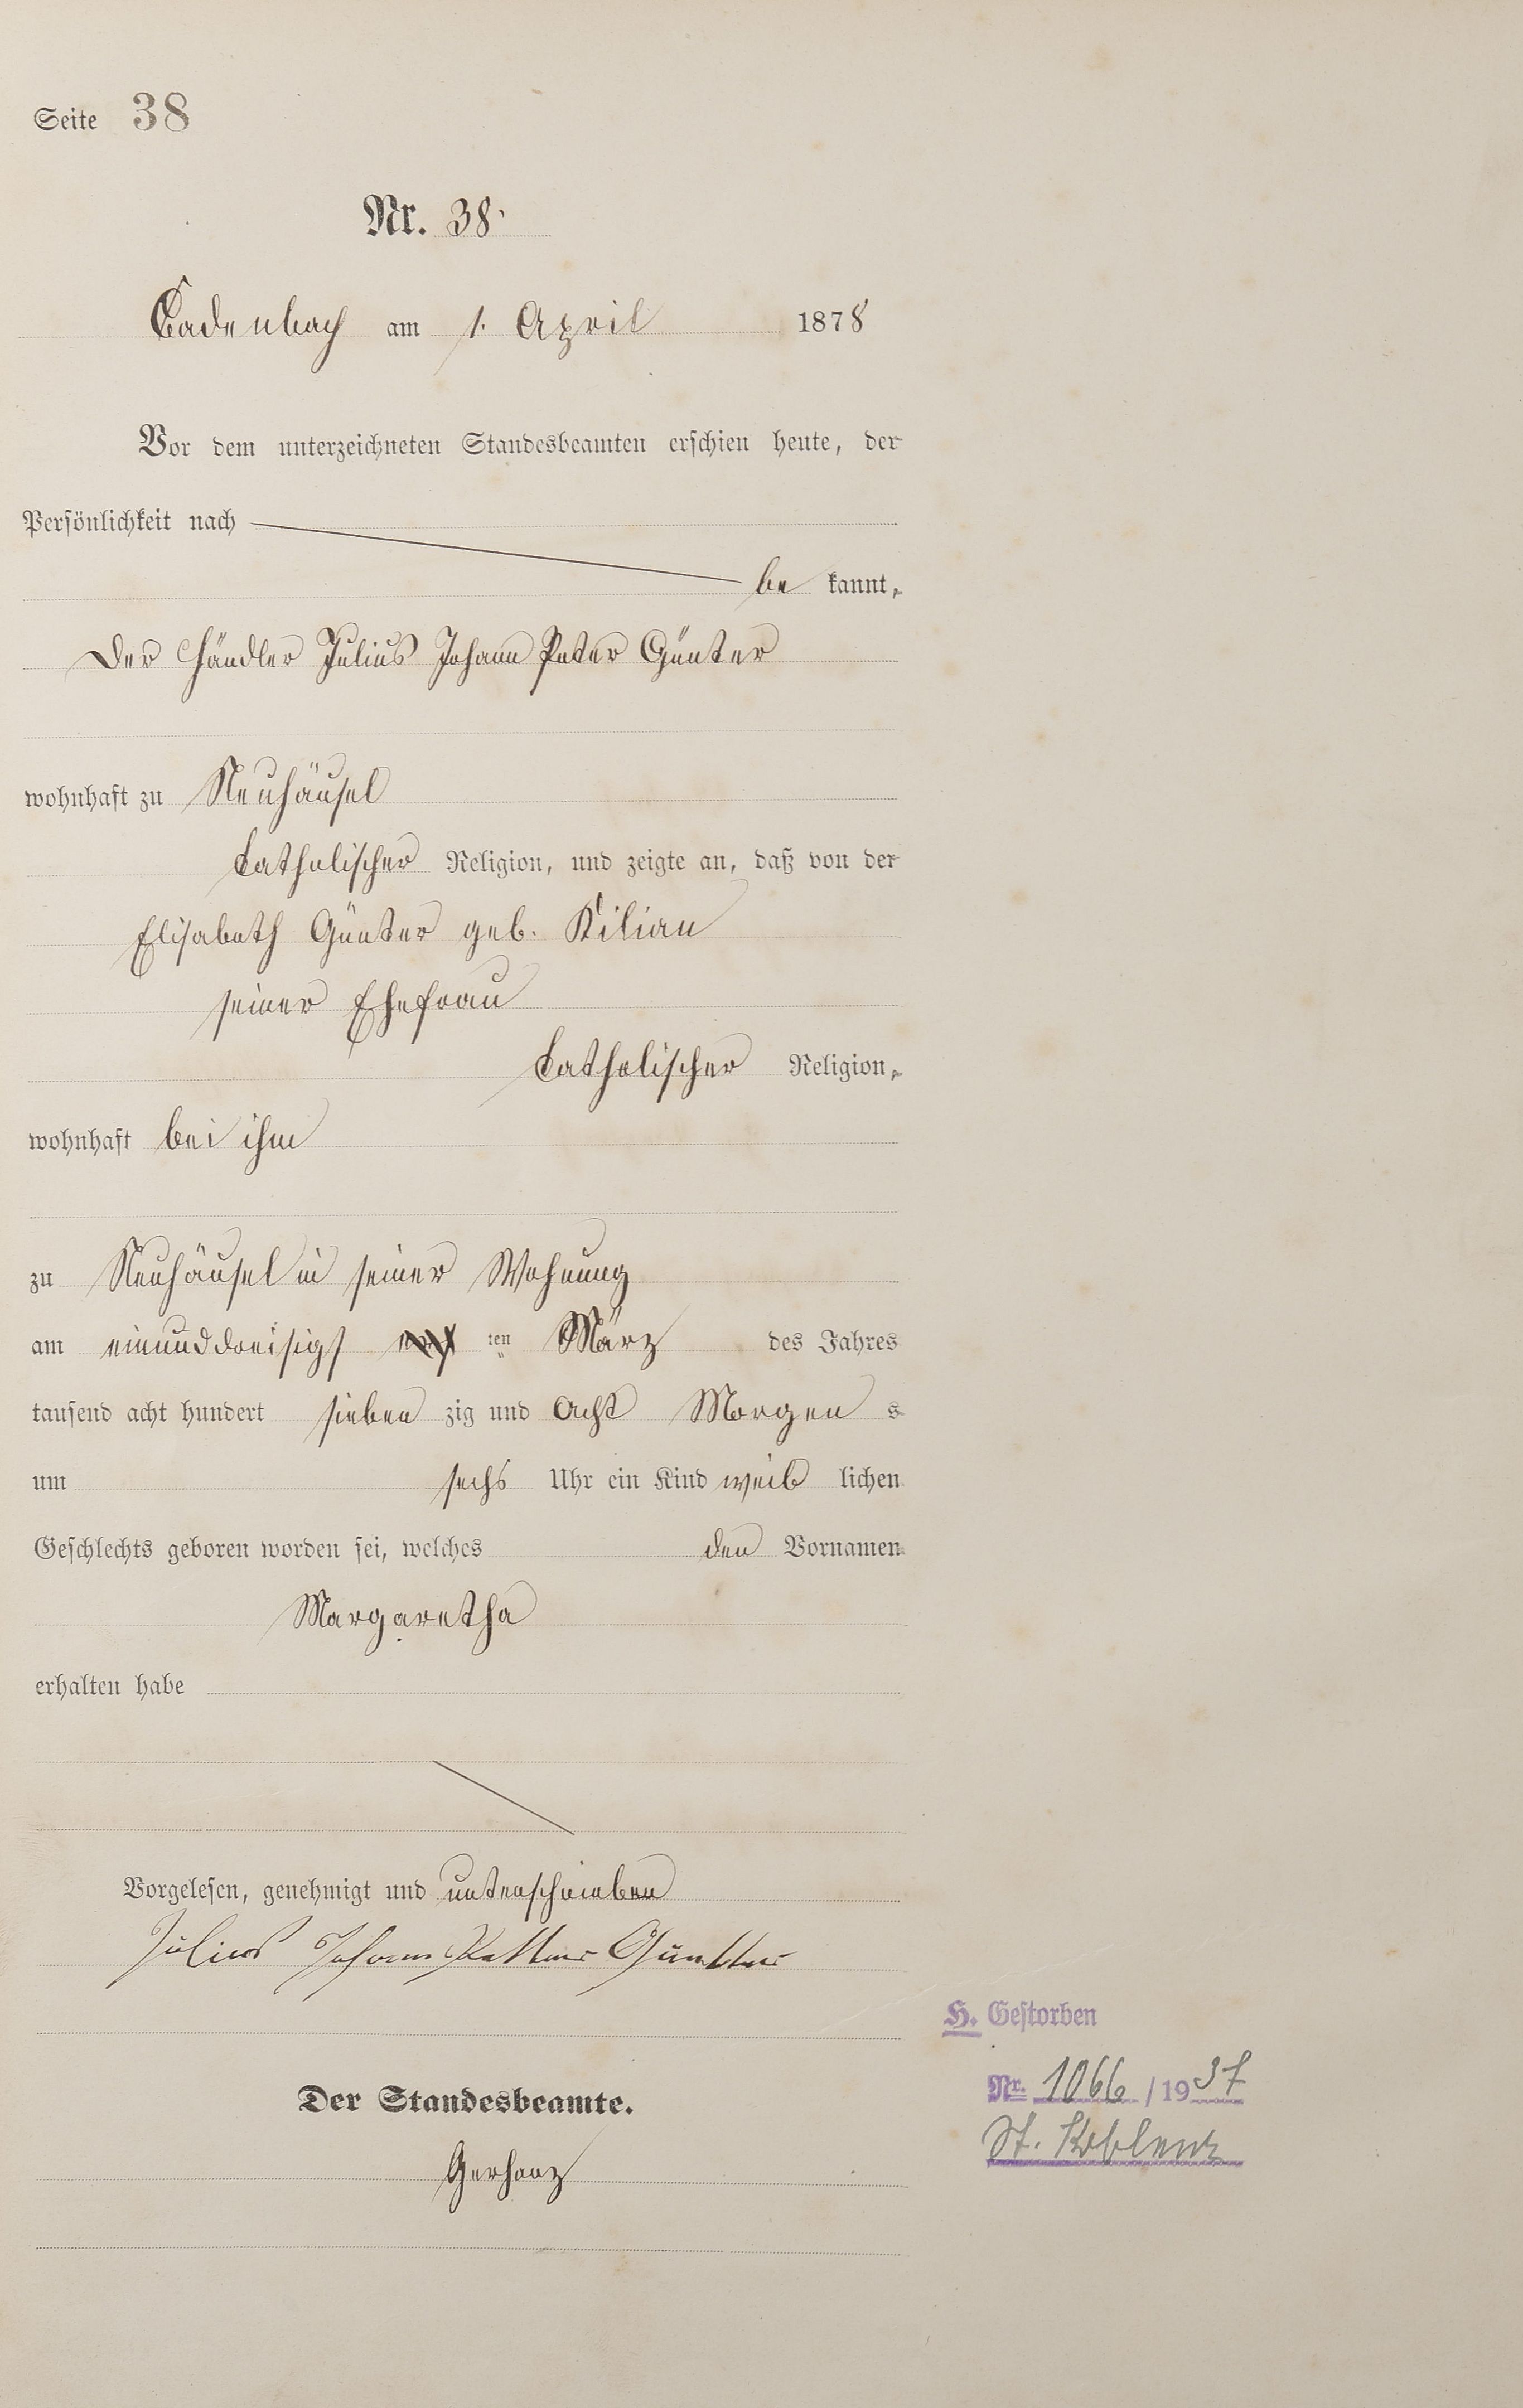 Seite 38
Nr. 38.
Cadenbach am 1. April 1878
Vor dem unterzeichneten Standesbeamten erschien heute, der
Persönlichkeit nach
be kannt,
Der Händler Julius Johann Peter Günter
wohnhaft zu Neuhäusel
Catholischer Religion, und zeigte an, daß von der
Elisabeth Günter geb. Kilian
seiner Ehefrau
Catholischer Religion,
wohnhaft bei ihm
zu Neuhäusel in seiner Wohnung
am einunddreisigst ten März des Jahres
tausend acht hundert sieben zig und Acht Morgen s
um sechs Uhr ein Kind weib lichen
Geschlechts geboren worden sei, welches den Vornamen
Margaretha
erhalten habe
Vorgelesen, genehmigt und unterschrieben
Julius Johann Petter Günter
Der Standesbeamte.
Gerharz
H. Gestorben
Nr. 1066/1937
St. Koblenz